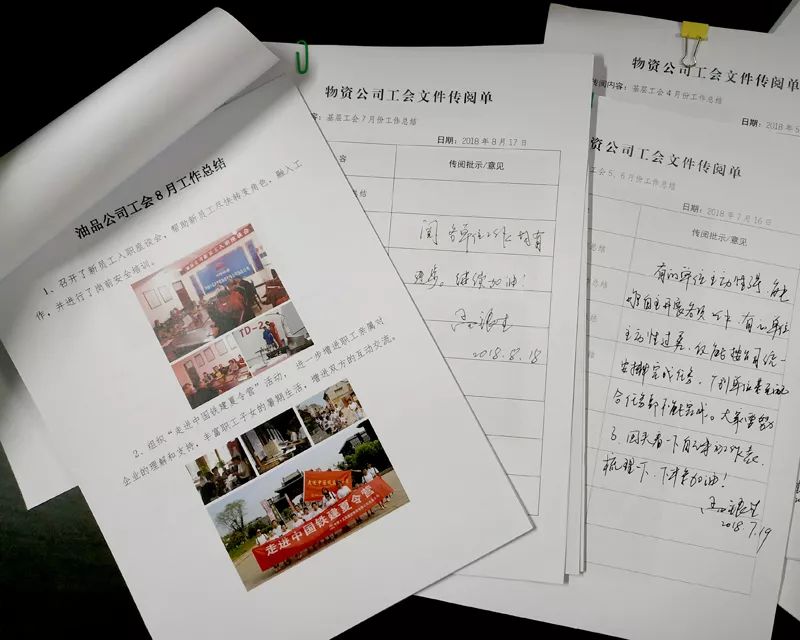 油品公司工会8月工作总结
1、召开了新员工入职座谈会，帮助新员工尽快转变角色，融入工
作，并进行了岗前安全培训。
TD-2
2、组织“走进中国铁建夏令营”活动，进一步增进职工亲属对
企业的理解和支持，丰富职工子女的暑期生活，增进双方的互动交流。
走进中国铁建夏令营
物资公司工会文件传阅单
容：基层工会7月份工作总结
日期：2018年8月17日
容
传阅批示/意见
结
阅 各单位工作均有
进步。继续加油！
2018.8.18
物资公司工会文件传阅单
传阅内容：基层工会4月份工作总结
日期：2018年5
资公司工会文件传阅单
工会5、6月份工作总结
日期：2018年7月16日
传阅批示/意见
总结
总结
有的单位主动性强，能
够自主开展各项工作，有的单位
主动性过差，仅能按公司统一
安排完成任务，个别单位甚至连
合任务都不能完成。大家需努
力，回头看一下自己半年的工作，
梳理下，下半年加油！
2018.7.19